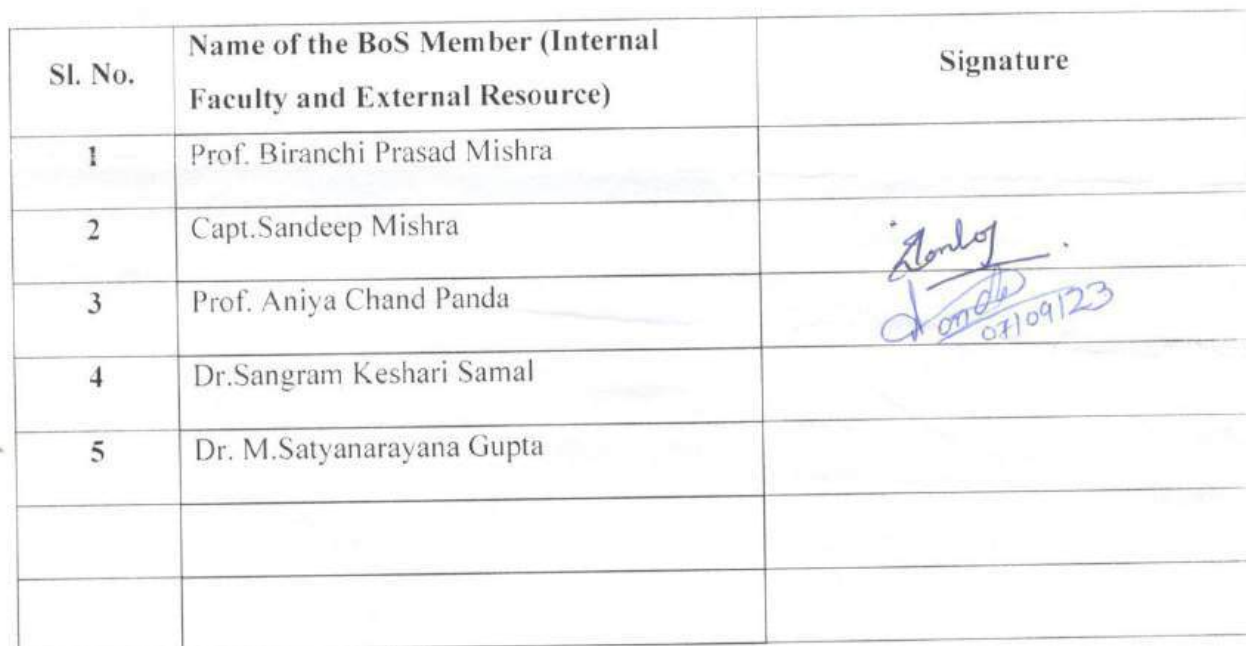 Sl. No.
Name of the BoS Member (Internal
Faculty and External Resource)
Signature
1
Prof. Biranchi Prasad Mishra
2
Capt.Sandeep Mishra
3
Prof. Aniya Chand Panda
07/09/23
4
Dr.Sangram Keshari Samal
5
Dr. M.Satyanarayana Gupta